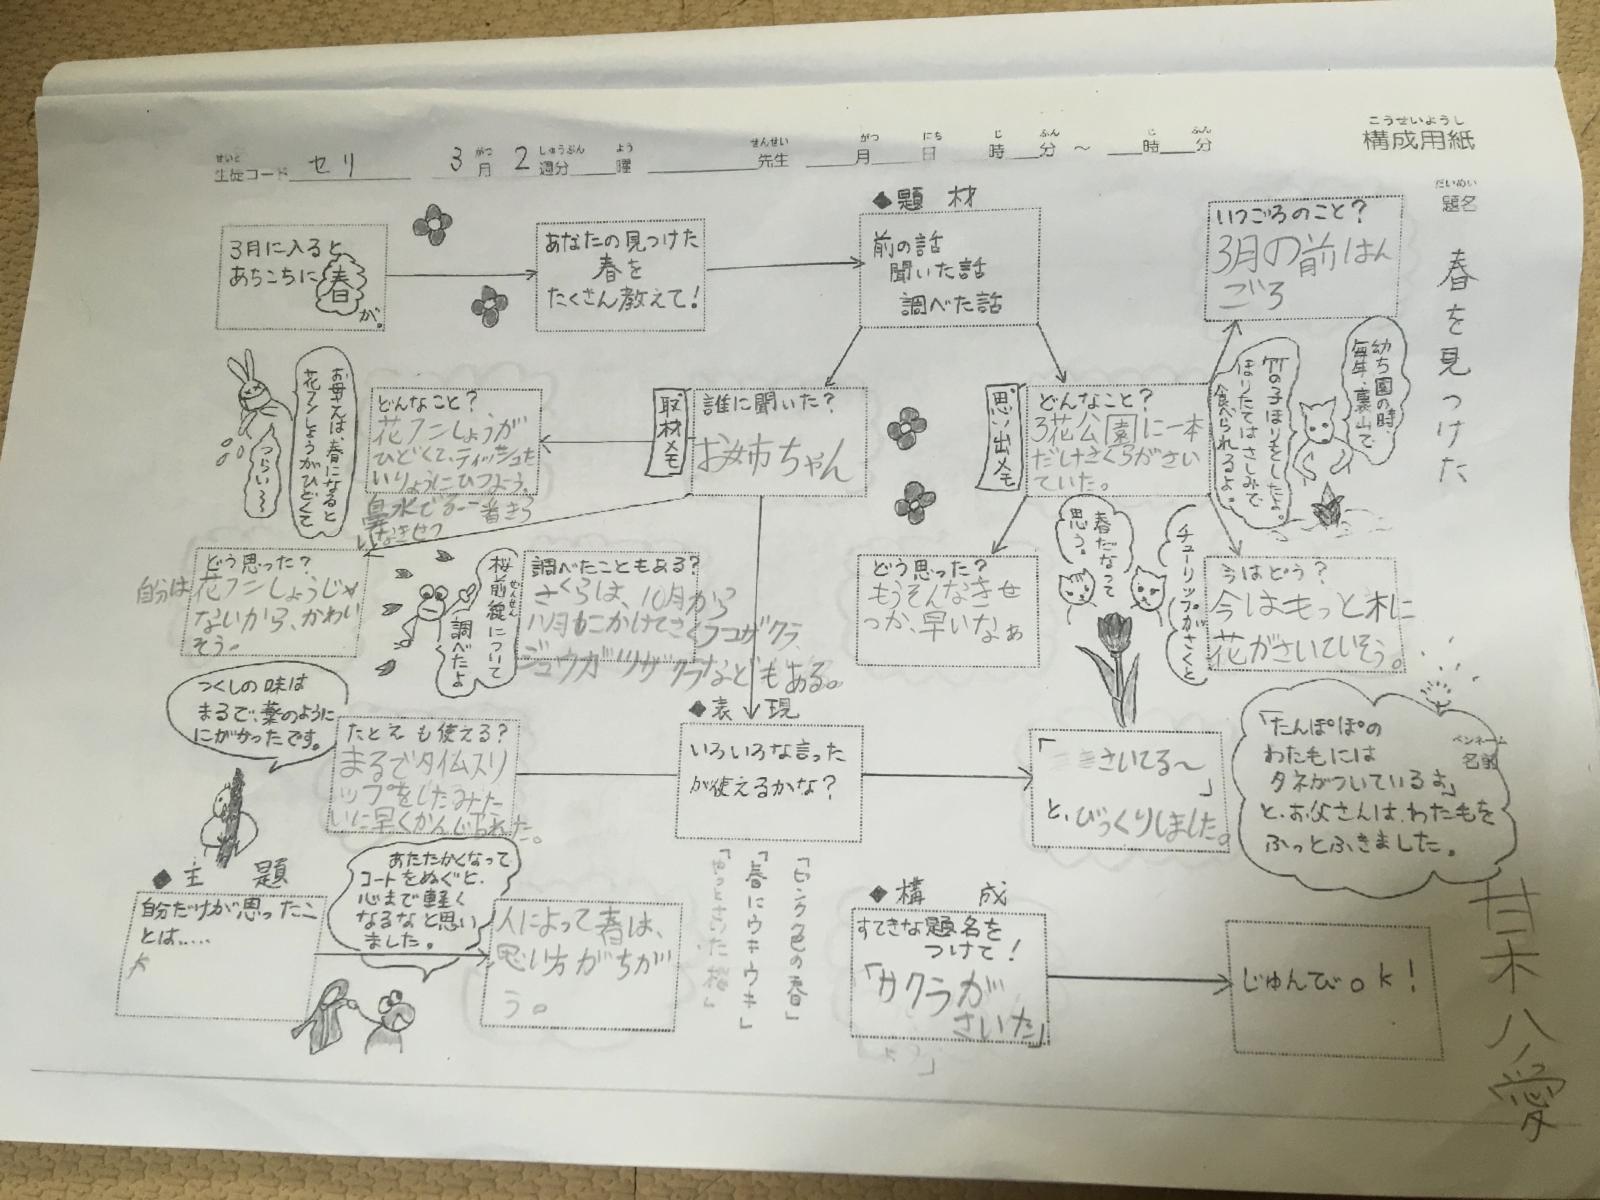 こうせいようし
構成用紙
せいと
生徒コード セリ
がつ しゅうぶん よう
3月 2週分 曜
せんせい
先生
がつ にち じ ふん じ ふん
月 日 時 分 ~ 時 分
だいめい
題名
春を見つけた
3月に入ると
あちこちに春が。
あなたの見つけた
春を
たくさん教えて!
◆題材
前の話
聞いた話
調べた話
いつごろのこと?
3月の前はん
ごろ
幼ち園の時、
毎年、裏山で
竹の子ほりをしたよ。
ほりたてはさしみで
食べられるよ。
お母さんは、春になると
花フンしょうがひどくて
つらい~
どんなこと?
花フンしょうが
ひどくて、ティッシュた
いりょうにひつよう。
鼻水でるー一番きら
いなきせつ
取材メモ
誰に聞いた?
お姉ちゃん
思い出メモ
どんなこと?
3花公園に一本
だけさくらがさい
ていた。
どう思った?
自分は花フンしょうじゃ
ないから、かわい
そう。
桜前線について
ぜんせん
調べたよ
調べたこともある?
さくらは、10月から
八月もにかけてさくフユザクラ、
ジュウガツザクラなどもある。
どう思った?
もうそんなきせ
つか、早いなぁ
チューリップがさくと
春だなって
思う。
今はどう?
今はもっと木に
花がさいていそう。
つくしの味は
まるで、薬のように
にがかったです。
たとえも使える?
まるでタイムスリ
ップをしたみた
いに早くかんじられた。
◆表現
いろいろな言った
が使えるかな?
「さいてる~」
と、びっくりしました。
「たんぽぽの
わたもには
タネがついているよ」
と、お父さんは、わたもを
ふっとふきました。
ペンネーム
名前
甘木八愛
◆主題
自分だけが思ったこ
とは.....
あたたかくなって
コートをぬぐと、
心まで軽く
なるなと思い
ました。
人によって春は、
思い方がちが
う。
「ピンク色の春」
「春にウキウキ」
「やっとさいた桜」
◆構成
すてきな題名を
つけて!
「サクラが
さいた」
じゅんびok!